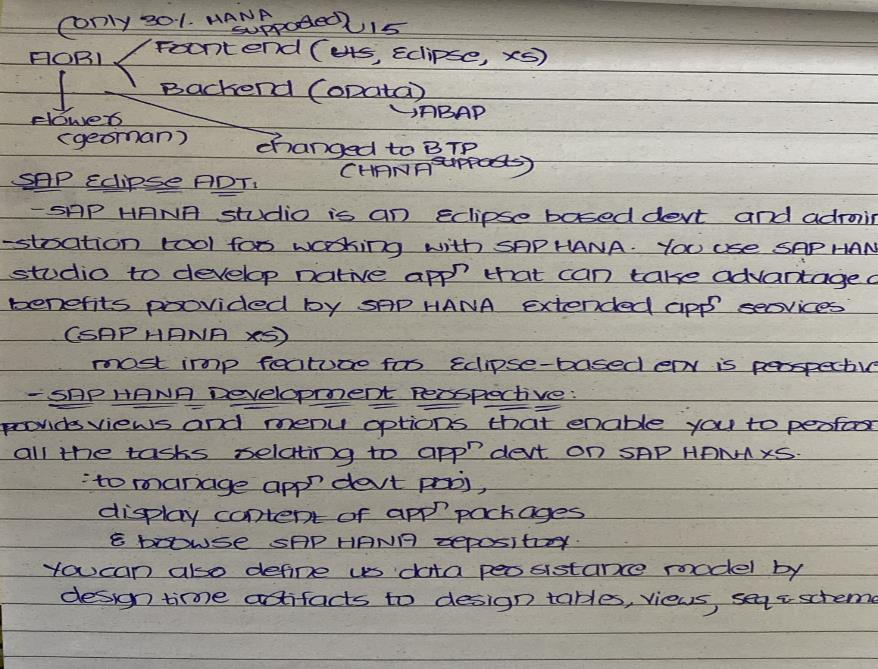 (only 30%. HANA
supported) U15
FIORI Frontend (UI5, Eclipse, XS)
Backend (OData)
↳ABAP
Flowers
(german)
changed to BTP
(HANA supports)
SAP Eclipse ADT:
-SAP HANA studio is an Eclipse based devt and admin
-stration tool for working with SAP HANA. You use SAP HAN
studio to develop native appn that can take advantage o
benefits provided by SAP HANA Extended appn services
(SAP HANA XS)
most imp feature for Eclipse-based env is perspective
- SAP HANA Development Perspective:
provids views and menu options that enable you to perfor
all the tasks relating to appn devt on SAP HANA XS.
: to manage appn devt proj,
display content of appn packages
& browse SAP HANA repository.
You can also define us data persistance model by
design time artifacts to design tables, views, seq & schema